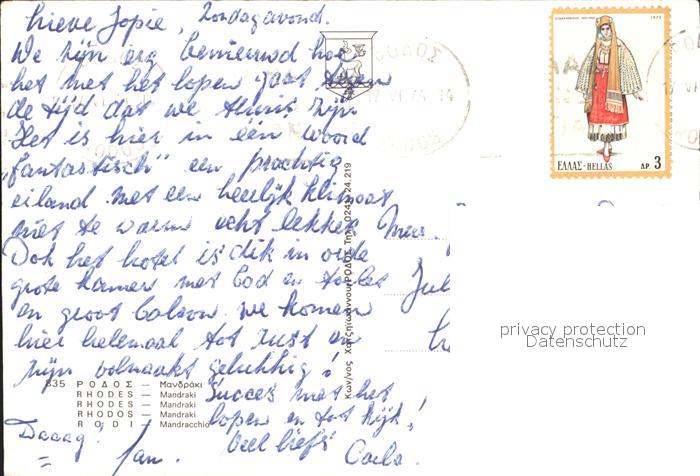 Lieve Jopie, Zondagavond.
We zijn erg benieuwd hoe
het met het lopen gaat tegen
de tijd dat we thuis zijn
Het is hier in een woord
"fantastisch" een prachtig
eiland met een heerlijk klimaat
niet te warm echt lekker
Ook het hotel is dik in orde
grote kamers met bad en toilet
en groot balcon. we komen
hier helemaal tot rust en
zijn volmaakt gelukkig!
Succes met het
lopen en tot kijk!
Daaag! Jan. Veel liefs
Carla.
Mevr.
Jul
835 ΡΟΔΟΣ — Μανδράκι
RHODES — Mandraki
RHODES — Mandraki
RHODOS — Mandraki
RODI — Mandracchio
Κων/νος Χατζηϊωάννου ΡΟΔΟΣ Τηλ. 0241-24.219
ΕΛΛΑΣ-HELLAS ΔΡ. 3
privacy protection
Datenschutz